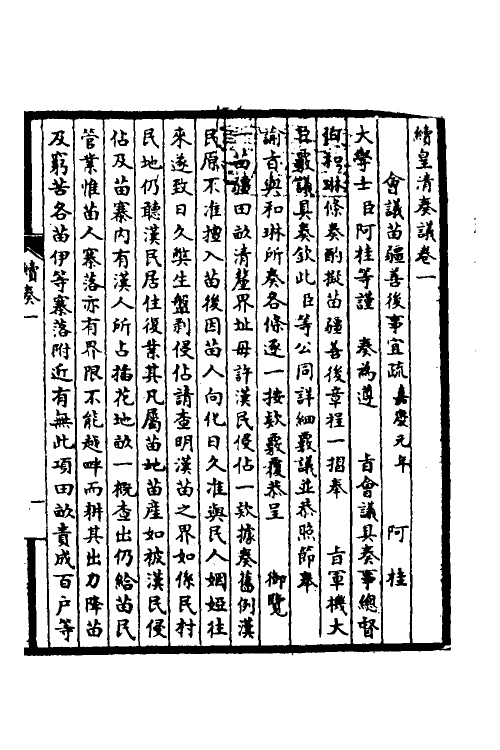 續皇清奏議卷一
會議苗疆善後事宜疏 嘉慶元年 阿桂
大學士臣阿桂等謹 奏為遵 旨會議具奏事總督
和琳條奏酌擬苗疆善後章程一摺奉 旨軍機大
臣覈議具奏欽此臣等公同詳細覈議並恭照節奉
諭旨與和琳所奏各條逐一按欵覈覆恭呈 御覽
一苗疆田畝清釐界址毋許漢民侵佔一欵據奏舊例漢
民原不准擅入苗後因苗人向化日久准與民人姻婭往
來遂致日久獘生盤剥侵佔請查明漢苗之界如係民村
民地仍聽漢民居住復業其凡屬苗地苗産如被漢民侵
佔及苗寨內有漢人所占插花地畝一概查出仍給苗民
管業惟苗人寨落亦有界限不能越畔而耕其出力降苗
及窮苦各苗伊等寨落附近有無此項田畝責成百户等
續奏一
一